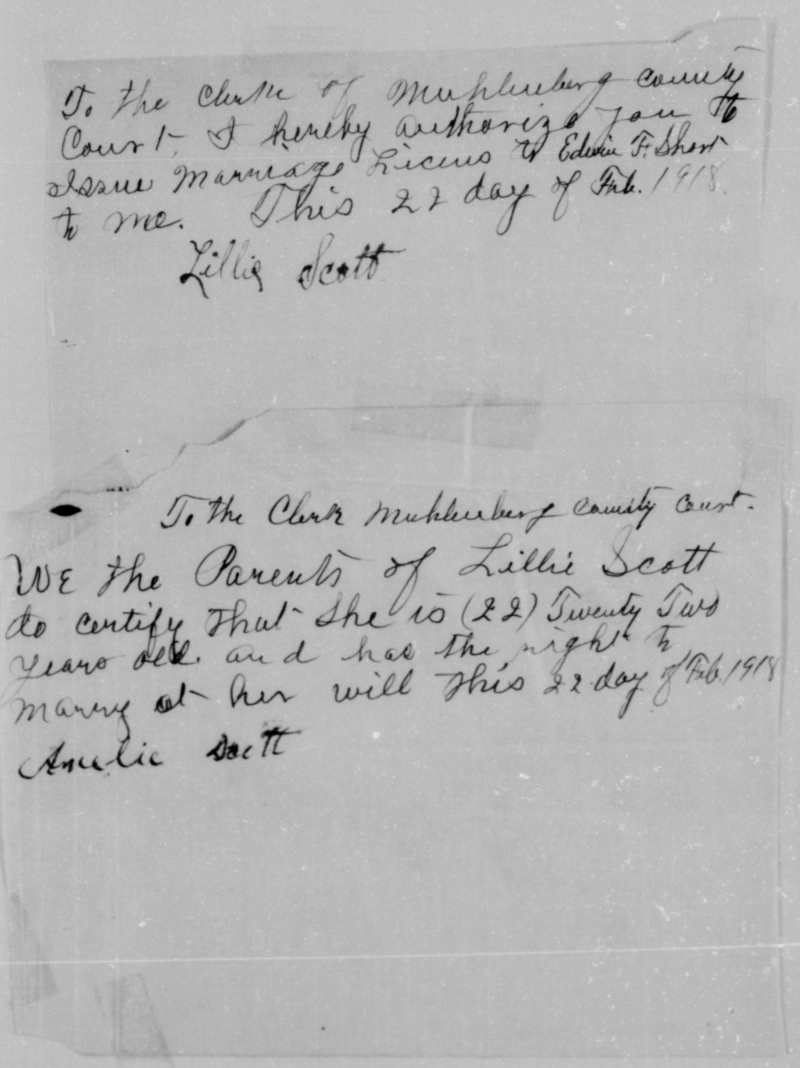 To the Clerk of Muhlenberg County
Court, I hereby authorize you to
Issue Marriage Licens to Edwin F. Short
to me. This 22 day of Feb. 1918.
Lillie Scott
To the Clerk Muhlenberg County Court.
WE the Parents of Lillie Scott
do certify that she is (22) Twenty Two
years old. and has the right to
marry at her will this 22 day of Feb. 1918
Amelie Scott